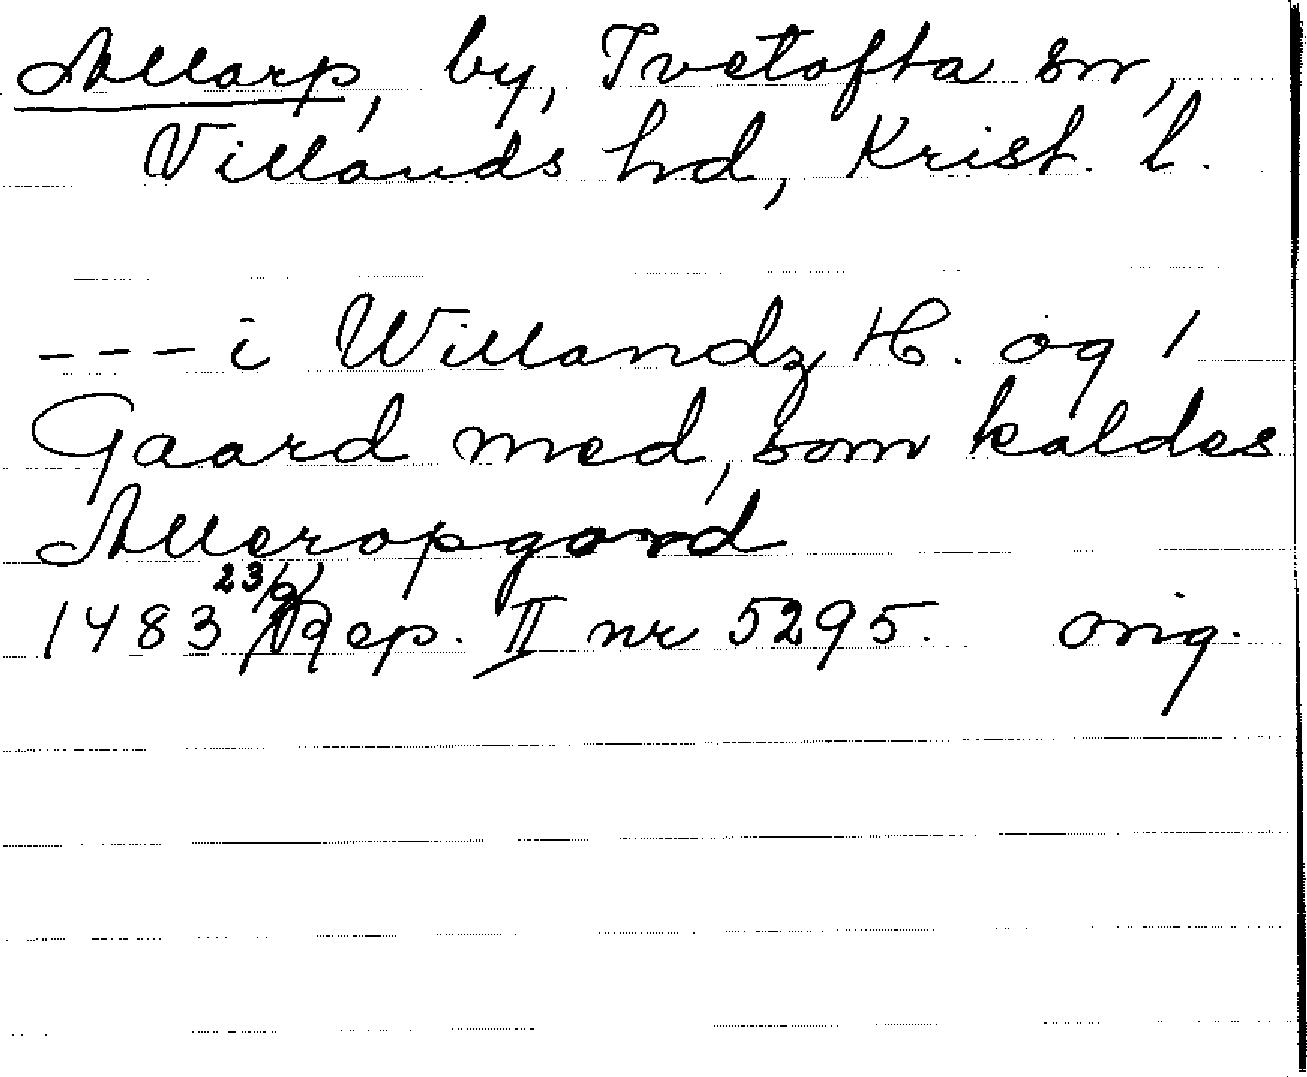 Allarp, by, Tvetofta sn,
Villands hd, Krist. l.
--- i Willandz H. og 1
Gaard med, som kaldes
Alleropgard
1483 23/9 Rep. II nr 5295. orig.